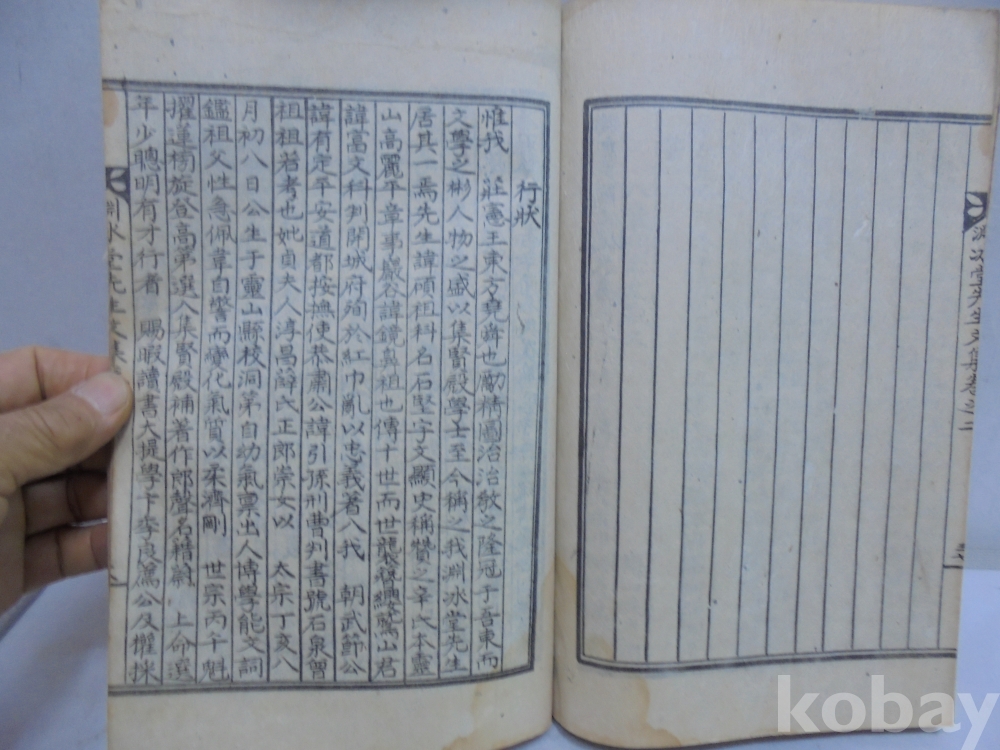 淵氷堂先生文集卷之二
行狀
惟我 莊憲王東方堯舜也勵精圖治治敎之隆冠于吾東而
文學之彬人物之盛以集賢殿學士至今稱之我淵冰堂先生
居其一焉先生諱碩祖科名石堅字文顯史稱贊之辛氏本靈
山高麗平章事巖谷諱鏡鼻祖也傳十世而世襲鷲山君
諱富文科判開城府殉於紅巾亂以忠義著入我 朝武節公
諱有定平安道都按撫使恭肅公諱引孫刑曹判書號石泉曾
祖祖若考也妣貞夫人淳昌薛氏正郎崇女以 太宗丁亥八
月初八日公生于靈山縣校洞第自幼氣禀出人博學能文詞
鑑祖父性急佩韋自警而變化氣質以柔濟剛 世宗丙午魁
擢蓮榜旋登高第選入集賢殿補著作郎聲名籍蔚 上命選
年少聰明有才行者 賜暇讀書大提學卞季良薦公及權採
淵氷堂先生文集
kobay